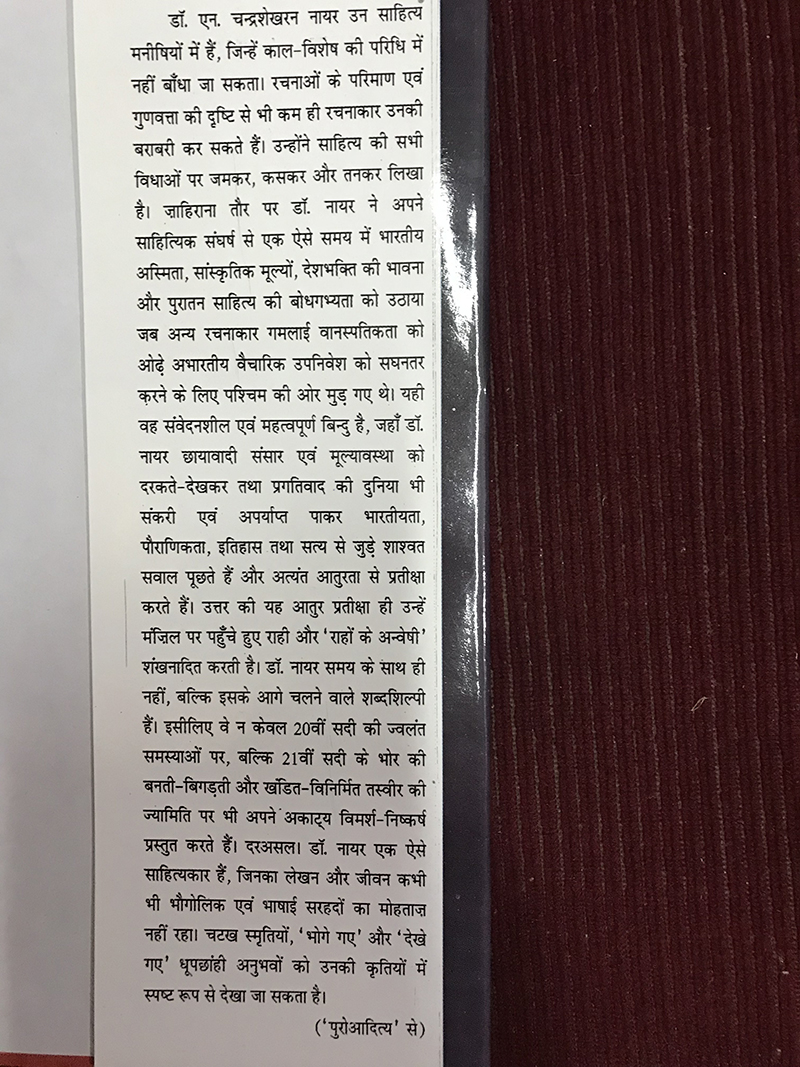 डॉ. एन. चन्द्रशेखरन नायर उन साहित्य
मनीषियों में हैं, जिन्हें काल-विशेष की परिधि में
नहीं बाँधा जा सकता। रचनाओं के परिमाण एवं
गुणवत्ता की दृष्टि से भी कम ही रचनाकार उनकी
बराबरी कर सकते हैं। उन्होंने साहित्य की सभी
विधाओं पर जमकर, कसकर और तनकर लिखा
है। ज़ाहिराना तौर पर डॉ. नायर ने अपने
साहित्यिक संघर्ष से एक ऐसे समय में भारतीय
अस्मिता, सांस्कृतिक मूल्यों, देशभक्ति की भावना
और पुरातन साहित्य की बोधगभ्यता को उठाया
जब अन्य रचनाकार गमलाई वानस्पतिकता को
ओढ़े अभारतीय वैचारिक उपनिवेश को सघनतर
करने के लिए पश्चिम की ओर मुड़ गए थे। यही
वह संवेदनशील एवं महत्वपूर्ण बिन्दु है, जहाँ डॉ.
नायर छायावादी संसार एवं मूल्यावस्था को
दरकते-देखकर तथा प्रगतिवाद की दुनिया भी
संकरी एवं अपर्याप्त पाकर भारतीयता,
पौराणिकता, इतिहास तथा सत्य से जुड़े शाश्वत
सवाल पूछते हैं और अत्यंत आतुरता से प्रतीक्षा
करते हैं। उत्तर की यह आतुर प्रतीक्षा ही उन्हें
मंज़िल पर पहुँचे हुए राही और ‘राहों के अन्वेषी’
शंखनादित करती है। डॉ. नायर समय के साथ ही
नहीं, बल्कि इसके आगे चलने वाले शब्दशिल्पी
हैं। इसीलिए वे न केवल 20वीं सदी की ज्वलंत
समस्याओं पर, बल्कि 21वीं सदी के भोर की
बनती-बिगड़ती और खंडित-विनिर्मित तस्वीर की
ज्यामिति पर भी अपने अकाट्य विमर्श-निष्कर्ष
प्रस्तुत करते हैं। दरअसल। डॉ. नायर एक ऐसे
साहित्यकार हैं, जिनका लेखन और जीवन कभी
भी भौगोलिक एवं भाषाई सरहदों का मोहताज़
नहीं रहा। चटख स्मृतियों, ‘भोगे गए’ और ‘देखे
गए’ धूपछांही अनुभवों को उनकी कृतियों में
स्पष्ट रूप से देखा जा सकता है।
(‘पुरोआदित्य’ से)